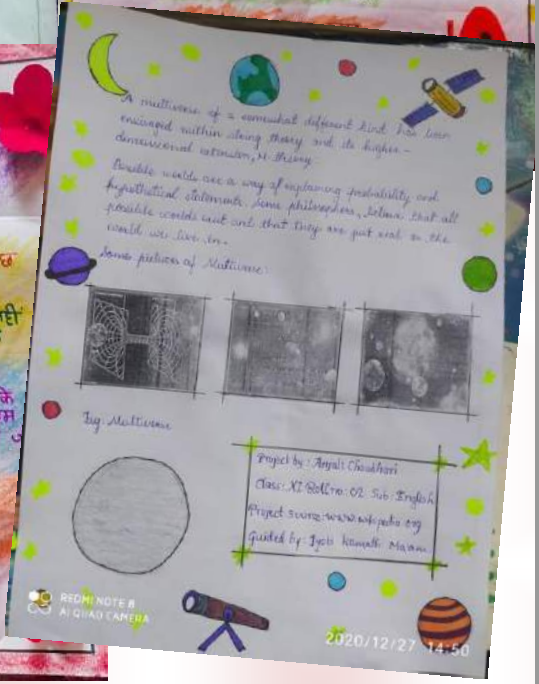 A multiverse of a somewhat different kind has been
envisaged within string theory and its higher-
dimensional extension, M-theory
Possible worlds are a way of explaining probability and
hypothetical statements. Some philosophers, believe that all
possible worlds exist and that they are just real as the
world we live in.
Some pictures of Multiverse:
Fig: Multiverse
Project by: Anjali Choudhari
Class: XI Roll no: 02 Sub: English
Project source: www.wikipedia.org
Guided by: Jyoti Kamath Ma'am
REDMI NOTE 8
AI QUAD CAMERA
2020/12/27 14:50